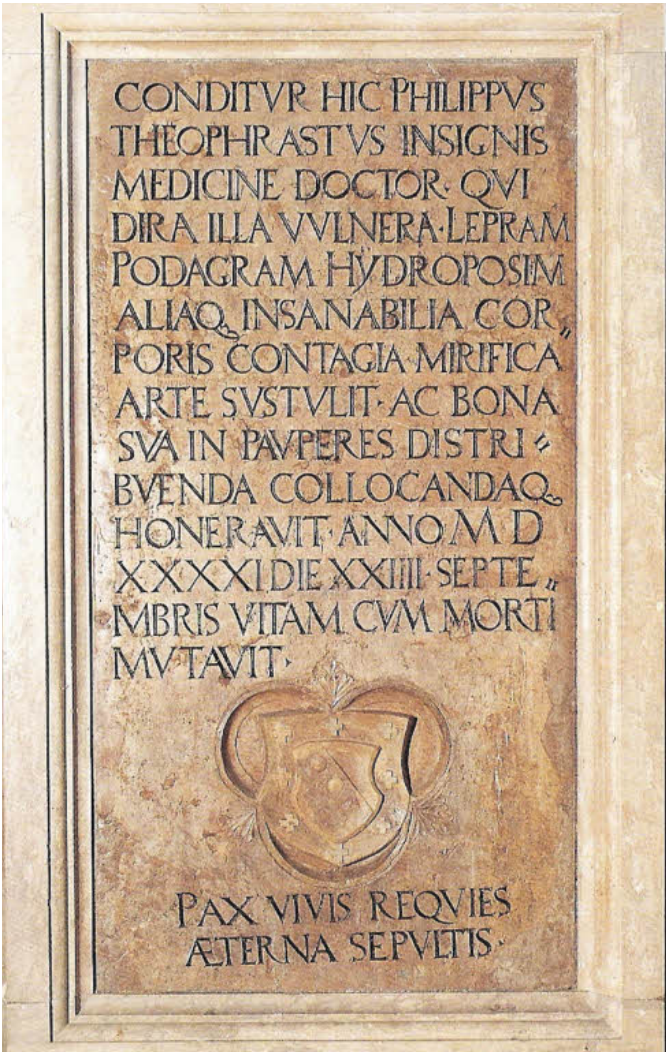 CONDITVR HIC PHILIPPVS
THEOPHRASTVS INSIGNIS
MEDICINE DOCTOR· QVI
DIRA ILLA VVLNERA·LEPRAM
PODAGRAM HŸDROPOSIM
ALIAQ INSANABILIA COR„
PORIS CONTAGIA·MIRIFICA
ARTE SVSTVLIT· AC BONA
SVA IN PAVPERES DISTRI„
BVENDA COLLOCANDAQ
HONERAVIT· ANNO·M D
XXXXXI·DIE XXIIII· SEPTE„
MBRIS VITAM CVM MORTI
MVTAVIT·
PAX VIVIS REQVIES
ÆTERNA SEPVLTIS·